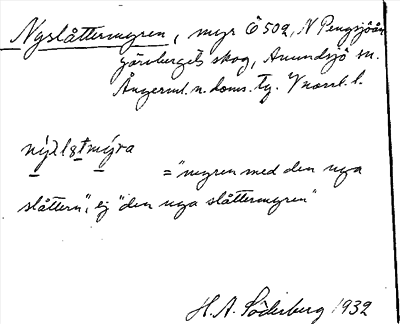 Nyslåttermyren, myr Ö 502, N Pengsjöån
Gåsbergets skog, Anundsjö sn.
Ångerml. n. doms. Tg. V norrl. l.
= "myren med den nya
slåttern", ej "den nya slåttermyren"
H.A. Söderberg 1932